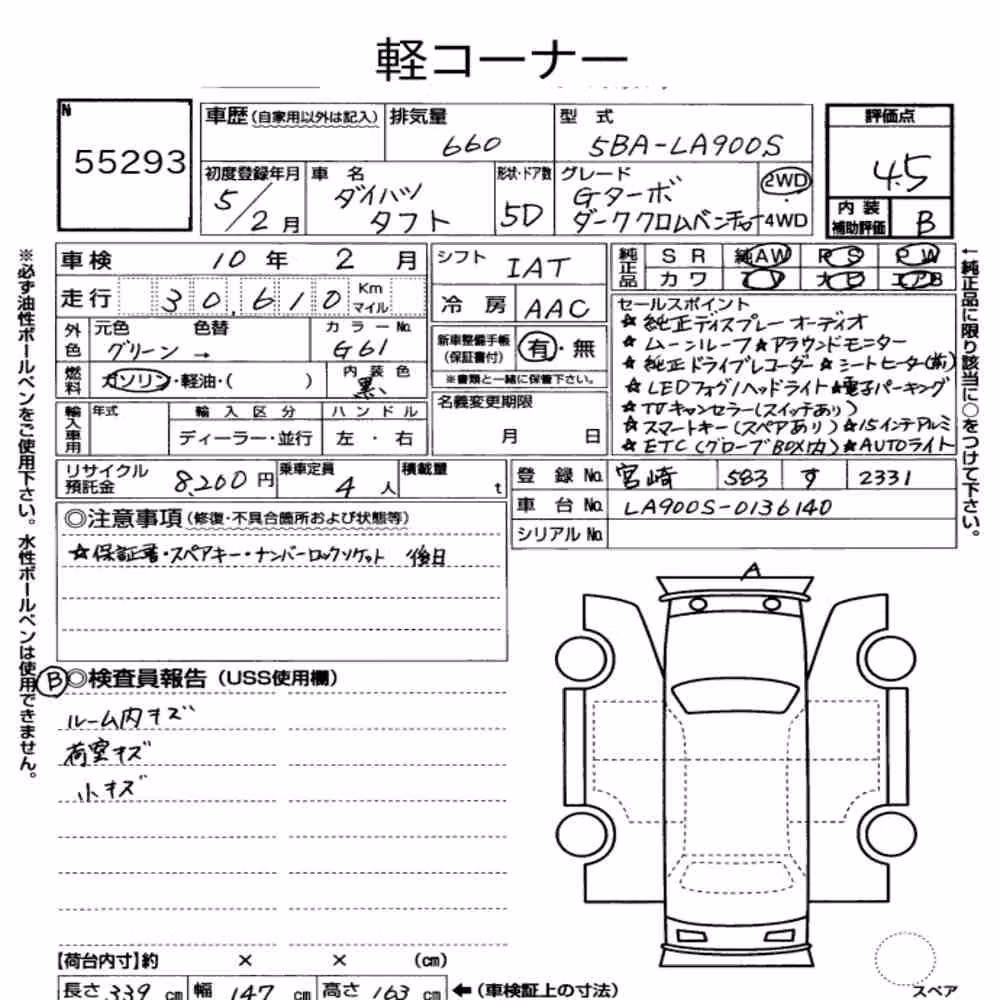 軽コーナー
N
55293
車歴(自家用以外は記入)
排気量
660
型 式
5BA-LA900S
評価点
4.5
初度登録年月
5/2月
車 名
ダイハツ
タフト
形状・ドア数
5D
グレード
Gターボ
ダーククロムベンチャー
2WD
・
4WD
内 装
補助評価
B
車検 10年 2月
走行 30,610 Km
マイル
外色
元色 色替 カラーNo.
グリーン → G61
燃料
ガソリン・軽油・( )
内 装 色
黒
輸入車用
年式
輸 入 区 分
ハ ン ド ル
ディーラー・並行
左 ・ 右
シフト
IAT
冷 房
AAC
新車整備手帳
(保証書付)
有・無
※書類と一緒に保管下さい。
名義変更期限
月 日
純正品
S R 純AW P S P W
カ ワ
セールスポイント
☆ 純正ディスプレーオーディオ
☆ ムーンルーフ ☆アラウンドモニター
☆ 純正ドライブレコーダー ☆シートヒーター(前)
☆ LEDフォグ/ヘッドライト ☆電子パーキング
☆ TVキャンセラー(スイッチあり)
☆ スマートキー(スペアあり) ☆15インチアルミ
☆ ETC(グローブBOX内) ☆AUTOライト
リサイクル
預託金
8,200円
乗車定員
4人
積載量
t
登 録 No. 宮崎 583 す 2331
車 台 No. LA900S-0136140
シリアル No.
◎注意事項(修復・不具合箇所および状態等)
☆保証書・スペアキー・ナンバーロックソケット 後日
B
◎検査員報告(USS使用欄)
ルーム内キズ
荷室キズ
小キズ
A
【荷台内寸】約 × × (cm)
長さ 339 cm 幅 147 cm 高さ 163 cm ←(車検証上の寸法)
スペア
※必ず油性ボールペンをご使用下さい。水性ボールペンは使用できません。
←純正品に限り該当に○をつけて下さい。